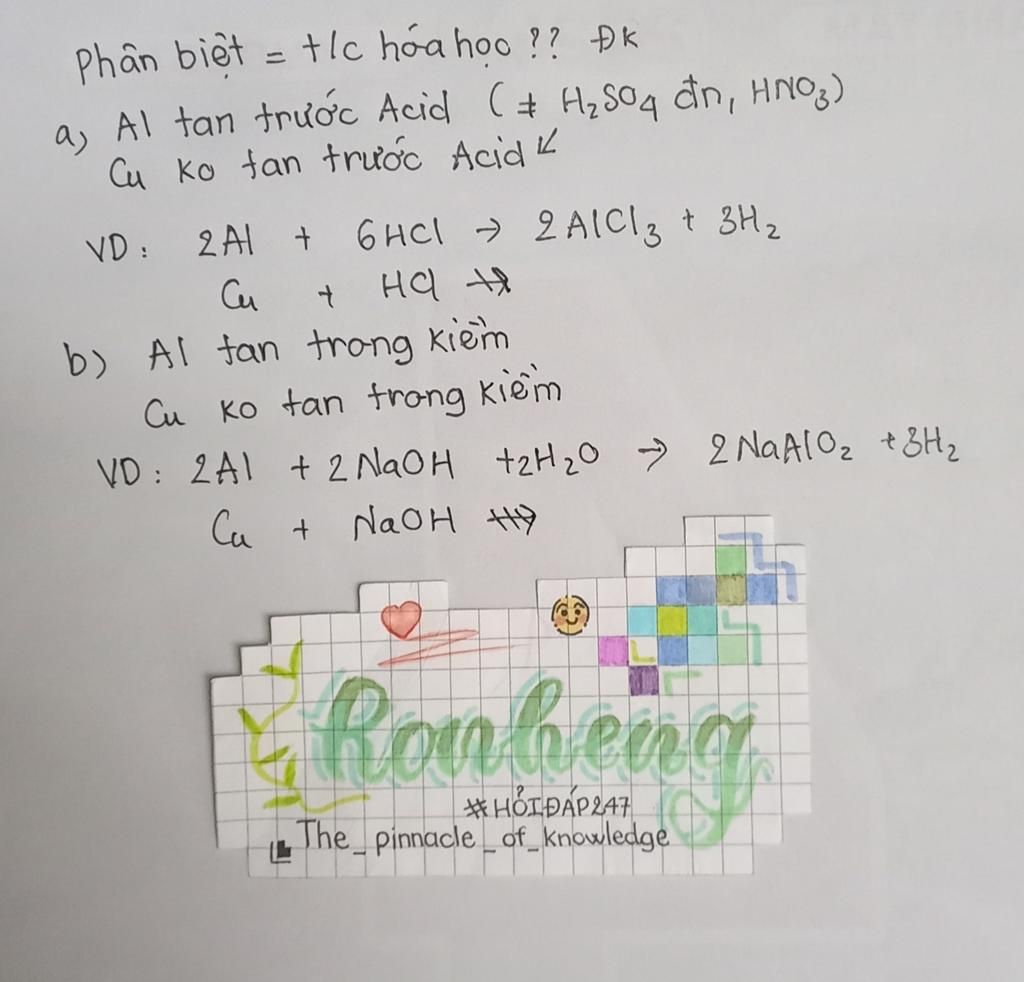 Phân biệt = t/c hóa học ?? ĐK
a) Al tan trước Acid (≠ H₂SO₄ đn, HNO₃)
Cu ko tan trước Acid ↙
VD: 2Al + 6HCl → 2AlCl₃ + 3H₂
Cu + HCl ↛
b) Al tan trong kiềm
Cu ko tan trong kiềm
VD: 2Al + 2NaOH +2H₂O → 2NaAlO₂ +3H₂
Cu + NaOH ↛
Ronheng
#HỎIĐÁP247
The_pinnacle_of_knowledge